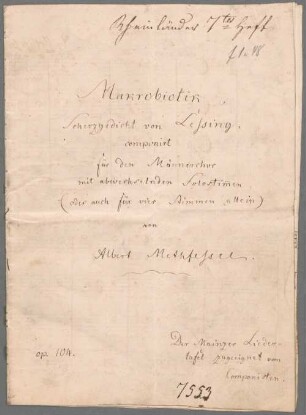 Rheinländer 7tes Heft
Makrobiotik,
Scherzgedicht von Lessing,
componirt
für den Männerchor
mit abwechselnden Solostimmen
(oder auch für vier Stimmen allein)
von
Albert Methfessel.
op. 104.
Der Mainzer Lieder-
tafel zugeeignet vom
Componisten.
7553